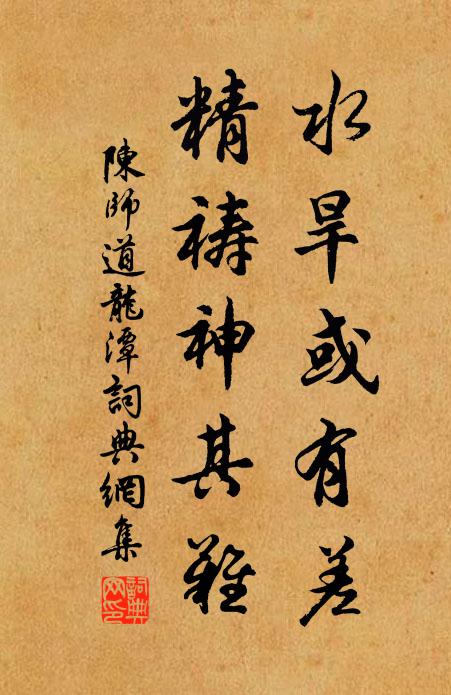 水旱或有差
精禱神其難
陳師道龍潭詞典網集
詞典网印